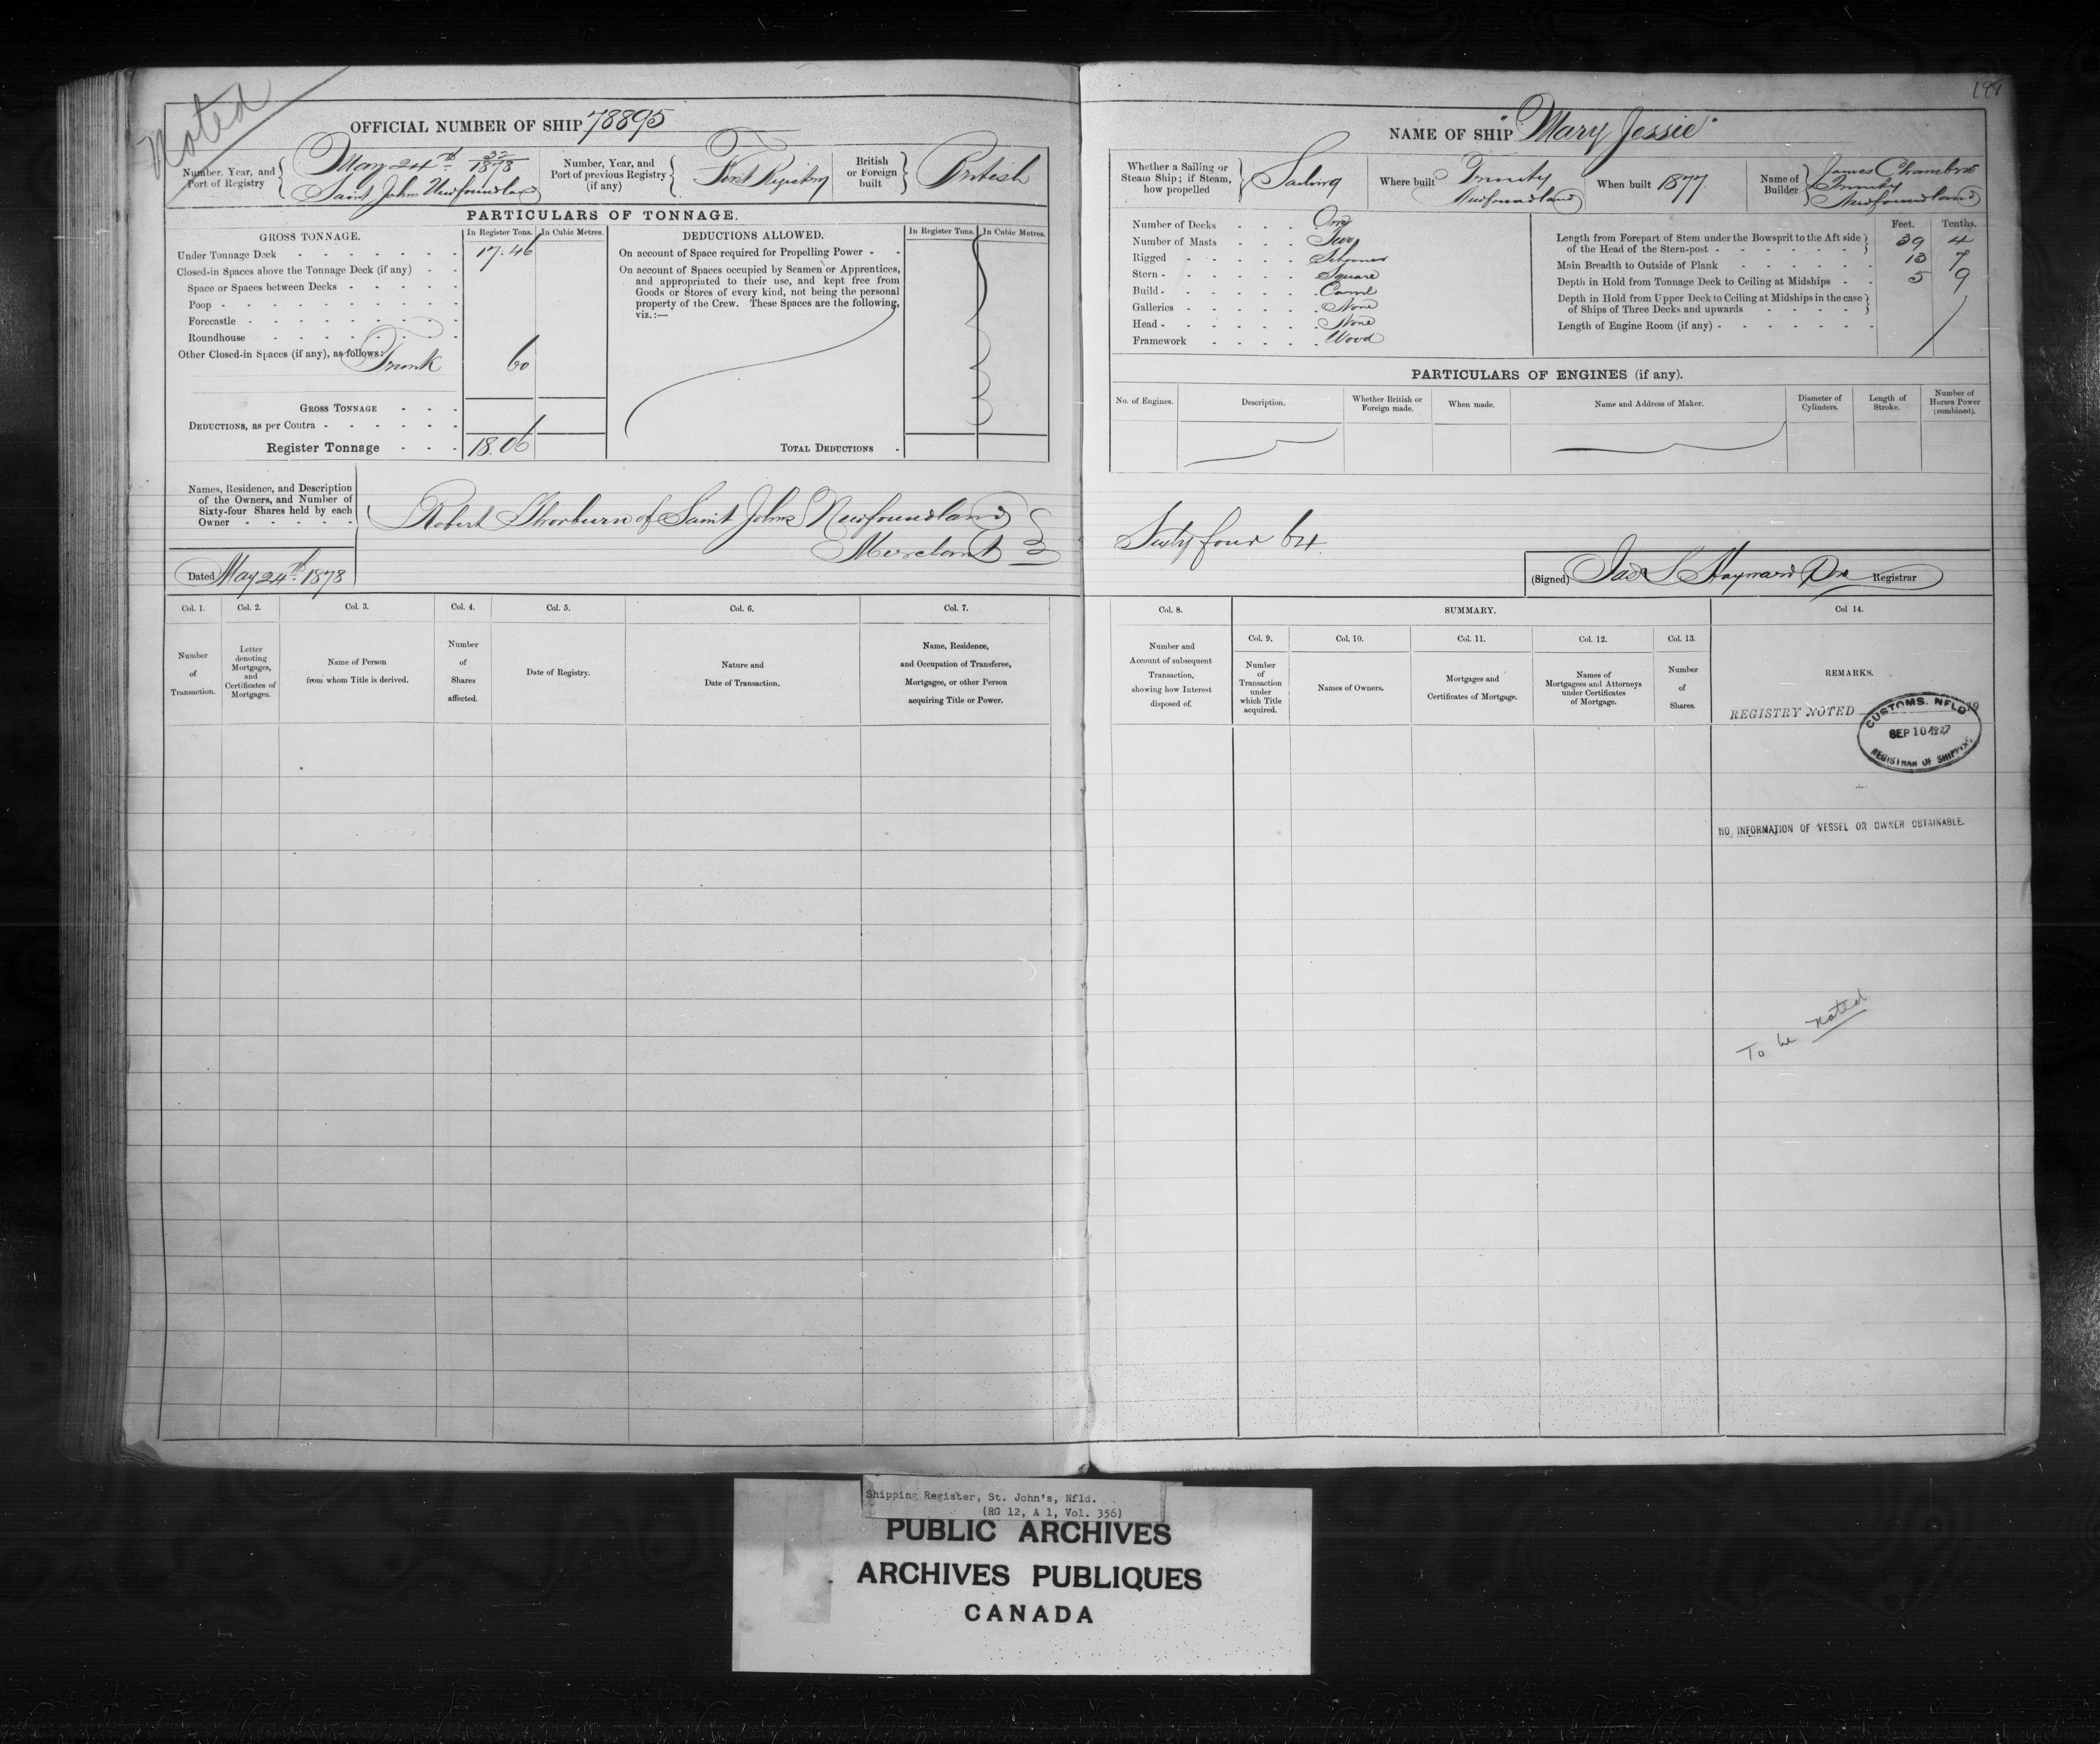 Noted
OFFICIAL NUMBER OF SHIP 78895
Number, Year, and
Port of Registry
May 24th 32/1878
Saint Johns Newfoundland
Number, Year, and
Port of previous Registry
(if any)
First Registry
British
or Foreign
built
British
PARTICULARS OF TONNAGE.
GROSS TONNAGE.
In Register Tons.
In Cubic Metres.
Under Tonnage Deck - - - - - - - 17.46
Closed-in Spaces above the Tonnage Deck (if any) - -
Space or Spaces between Decks - - - - -
Poop - - - - - - - - -
Forecastle - - - - - - - -
Roundhouse - - - - - - -
Other Closed-in Spaces (if any), as follows:
Trunk 60
GROSS TONNAGE - - -
DEDUCTIONS, as per Contra - - - - - -
Register Tonnage - - - 18.06
DEDUCTIONS ALLOWED.
In Register Tons.
In Cubic Metres.
On account of Space required for Propelling Power - -
On account of Spaces occupied by Seamen or Apprentices,
and appropriated to their use, and kept free from
Goods or Stores of every kind, not being the personal
property of the Crew. These Spaces are the following,
viz.:—
TOTAL DEDUCTIONS -
Names, Residence, and Description
of the Owners, and Number of
Sixty-four Shares held by each
Owner - - - - -
Robert Thorburn of Saint Johns Newfoundland
Merchant
Dated May 24th 1878
Col. 1.
Number
of
Transaction.
Col. 2.
Letter
denoting
Mortgages,
and
Certificates of
Mortgages.
Col. 3.
Name of Person
from whom Title is derived.
Col. 4.
Number
of
Shares
affected.
Col. 5.
Date of Registry.
Col. 6.
Nature and
Date of Transaction.
Col. 7.
Name, Residence,
and Occupation of Transferee,
Mortgagee, or other Person
acquiring Title or Power.
NAME OF SHIP "Mary Jessie"
Whether a Sailing or
Steam Ship; if Steam,
how propelled
Sailing
Where built
Trinity
Newfoundland
When built 1877
Name of
Builder
James Chambers
Trinity
Newfoundland
Number of Decks - - - One
Number of Masts - - - Two
Rigged - - - - - Schooner
Stern - - - - - - Square
Build - - - - - - Carvel
Galleries - - - - - None
Head - - - - - - None
Framework - - - - - Wood
Feet. Tenths.
Length from Forepart of Stem under the Bowsprit to the Aft side
of the Head of the Stern-post - - - - - - 39 4
Main Breadth to Outside of Plank - - - - - - 13 7
Depth in Hold from Tonnage Deck to Ceiling at Midships - - 5 9
Depth in Hold from Upper Deck to Ceiling at Midships in the case
of Ships of Three Decks and upwards - - - -
Length of Engine Room (if any) - - - - - - -
PARTICULARS OF ENGINES (if any).
No. of Engines.
Description.
Whether British or
Foreign made.
When made.
Name and Address of Maker.
Diameter of
Cylinders.
Length of
Stroke.
Number of
Horses Power
(combined).
Sixty four 64
(Signed) Jas S Hayward Registrar
Col. 8.
Number and
Account of subsequent
Transaction,
showing how Interest
disposed of.
SUMMARY.
Col. 9.
Number
of
Transaction
under
which Title
acquired.
Col. 10.
Names of Owners.
Col. 11.
Mortgages and
Certificates of Mortgage.
Col. 12.
Names of
Mortgagees and Attorneys
under Certificates
of Mortgage.
Col. 13.
Number
of
Shares.
Col 14.
REMARKS.
REGISTRY NOTED 19
CUSTOMS. NFLD
SEP 10 1927
REGISTRAR OF SHIPPING
NO INFORMATION OF VESSEL OR OWNER OBTAINABLE.
To be noted
Shipping Register, St. John's, Nfld.
(RG 12, A 1, Vol. 356)
PUBLIC ARCHIVES
ARCHIVES PUBLIQUES
CANADA